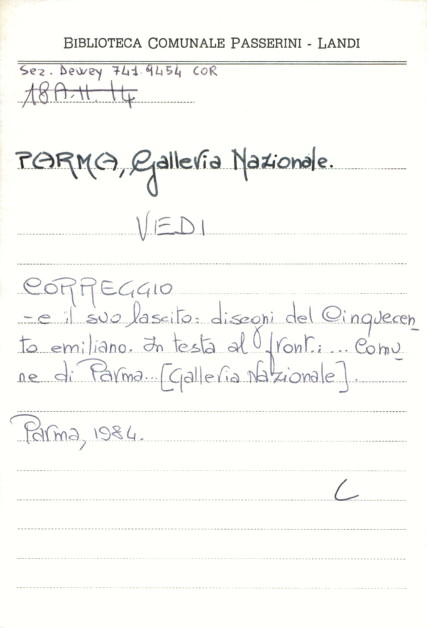 BIBLIOTECA COMUNALE PASSERINI - LANDI
Sez. Dewey 741.9454 COR
18A.II.14
PARMA, Galleria Nazionale.
VEDI
CORREGGIO
- e il suo lascito: disegni del Cinquecen
to emiliano. In testa al front.: ... Comu
ne di Parma... [Galleria Nazionale].
Parma, 1984.
C